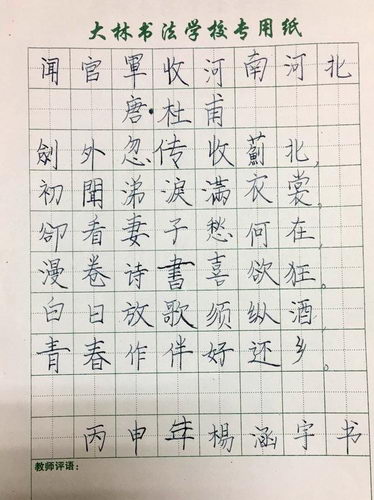 大林书法学校专用纸
闻官军收河南河北
唐杜甫
劍外忽传收薊北，
初聞涕淚满衣裳。
卻看妻子愁何在，
漫卷诗書喜欲狂。
白日放歌须纵酒，
青春作伴好还乡。
丙申年楊涵宇书
教师评语：